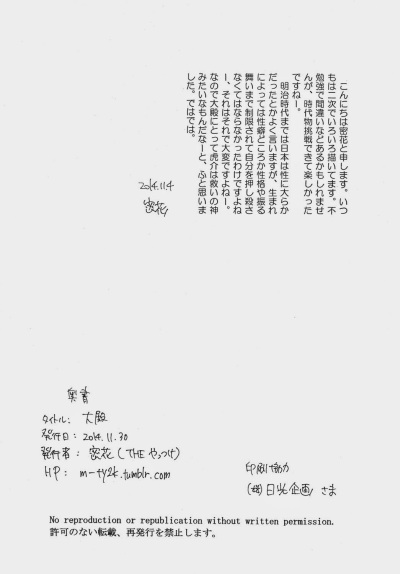 こんにちは密花と申します。いつ
もは二次でいろいろ描いてます。不
勉強で間違いなどあるかもしれませ
んが、時代物挑戦できて楽しかった
ですねー。
明治時代までは日本は性に大らか
だったとかよく言いますが、生まれ
によっては性癖どころか性格や振る
舞いまで制限されて自分を押し殺さ
なくてはならなかったわけですよね
ー、それはそれで大変ですよねー。
なので大殿にとって虎介は救いの神
みたいなもんだなーと、ふと思いま
した。ではでは。
2014.11.4
密花
奥書
タイトル: 大殿
発行日: 2014.11.30
発行者: 密花(THEやっつけ)
HP: m-ty2k.tumblr.com
印刷協力
(株)日光企画 さま
No reproduction or republication without written permission.
許可のない転載、再発行を禁止します。